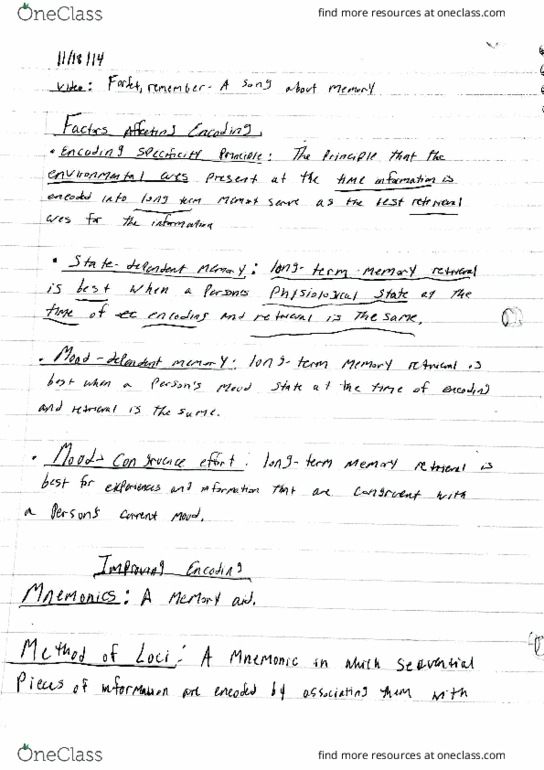 OneClass find more resources at oneclass.com
11/18/14
Video: Forget, remember - A song about memory
Factors Affecting Encoding
• Encoding Specificity Principle: The Principle that the
environmental cues present at the time information is
encoded into long term memory serve as the best retrieval
cues for the information
• State-dependent memory: long-term-memory retrieval
is best when a Person's Physiological State at the
time of ec encoding and retrieval is the same.
• Mood-dependent memory: long-term memory retrieval is
best when a Person's Mood State at the time of encoding
and retrieval is the same.
• Mood-Congruence effort: long-term memory retrieval is
best for experiences and information that are congruent with
a Person's current Mood.
Improving Encoding
Mnemonics: A Memory aid.
Method of Loci: A Mnemonic in which sequential
Pieces of information are encoded by associating them with
OneClass find more resources at oneclass.com